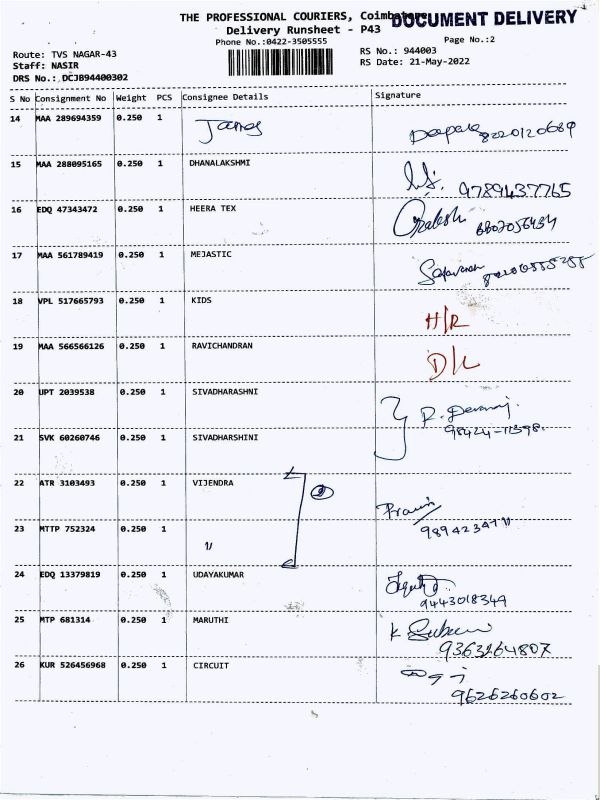 THE PROFESSIONAL COURIERS, Coimbatore
DOCUMENT DELIVERY
Delivery Runsheet - P43
Phone No.:0422-3505555
Page No.:2
Route: TVS NAGAR-43
RS No.: 944003
Staff: NASIR
RS Date: 21-May-2022
DRS No.: DCJB94400302
S No Consignment No Weight PCS Consignee Details Signature
14 MAA 289694359 0.250 1 James
15 MAA 288095165 0.250 1 DHANALAKSHMI
9789437765
16 EDQ 47343472 0.250 1 HEERA TEX
17 MAA 561789419 0.250 1 MEJASTIC
18 VPL 517665793 0.250 1 KIDS
H/R
19 MAA 566566126 0.250 1 RAVICHANDRAN
D/L
20 UPT 2039538 0.250 1 SIVADHARASHNI
21 SVK 60260746 0.250 1 SIVADHARSHINI
22 ATR 3103493 0.250 1 VIJENDRA
23 MTTP 752324 0.250 1 "
24 EDQ 13379819 0.250 1 UDAYAKUMAR
9443018349
25 MTP 681314 0.250 1 MARUTHI
9363264807
26 KUR 526456968 0.250 1 CIRCUIT
9626260602